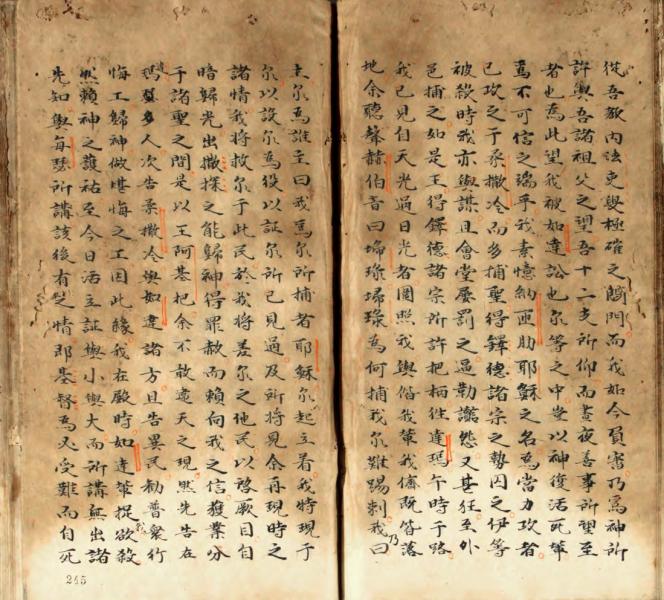 從吾敎內法吏與極確之門而我如今負審乃為神所
許與吾諸祖父之望吾十二支所仰而晝夜善事所望至
者也為此望我被如達訟也尔等之中豈以神復活死輩
為不可信之端乎我素憶納匝肋耶穌之名為當力攻者
已攻之于柔撒冷而多捕聖得鐸德諸宗之勢囚之伊等
被殺時我亦與謀且會堂屡罰之逼勒讟怨又甚狂至外
邑捕之如是王得鐸德諸宗所許把柄往達瑪午時于路
我已見自天光過日光者圍照我與偕我輩我儕既皆落
地余聽聲赭伯音曰埽琭埽琭為何捕我尔難踢刺我乃曰
主尔為誰主曰我為尔所捕者耶穌尔起立着我特現于
尔以設尔為役以証尔所已見過及所將見余再現時之
諸情我將救尔于此民於我將差尔之他民以啓厥目自
暗歸光出撒探之能歸神得罪赦而賴向我之信獲業分
于諸聖之間是以王阿基把余不敢違天之現照先告在
瑪人次告柔撒冷與如達諸方且告異民勸普衆行
悔工歸神做堪悔之工因此緣我在殿時如達輩捉我欲殺
然賴神之護祐至今日活立証與小與大而所講無出諸
先知與每瑟所講該後有之情即基督為必受難而自死
245